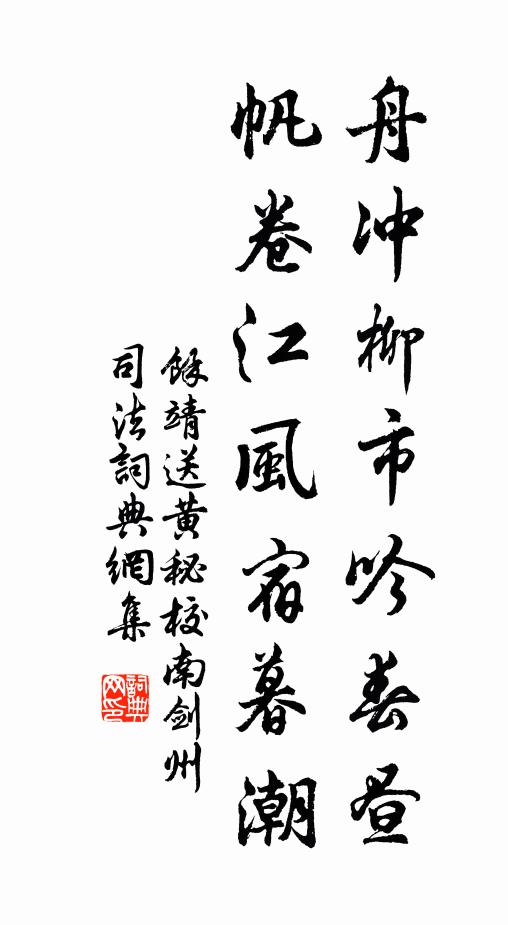 舟冲柳市吟春昼
帆卷江風宿暮潮
餘靖送黄秘校南剑州
司法詞典網集
詞典
网印